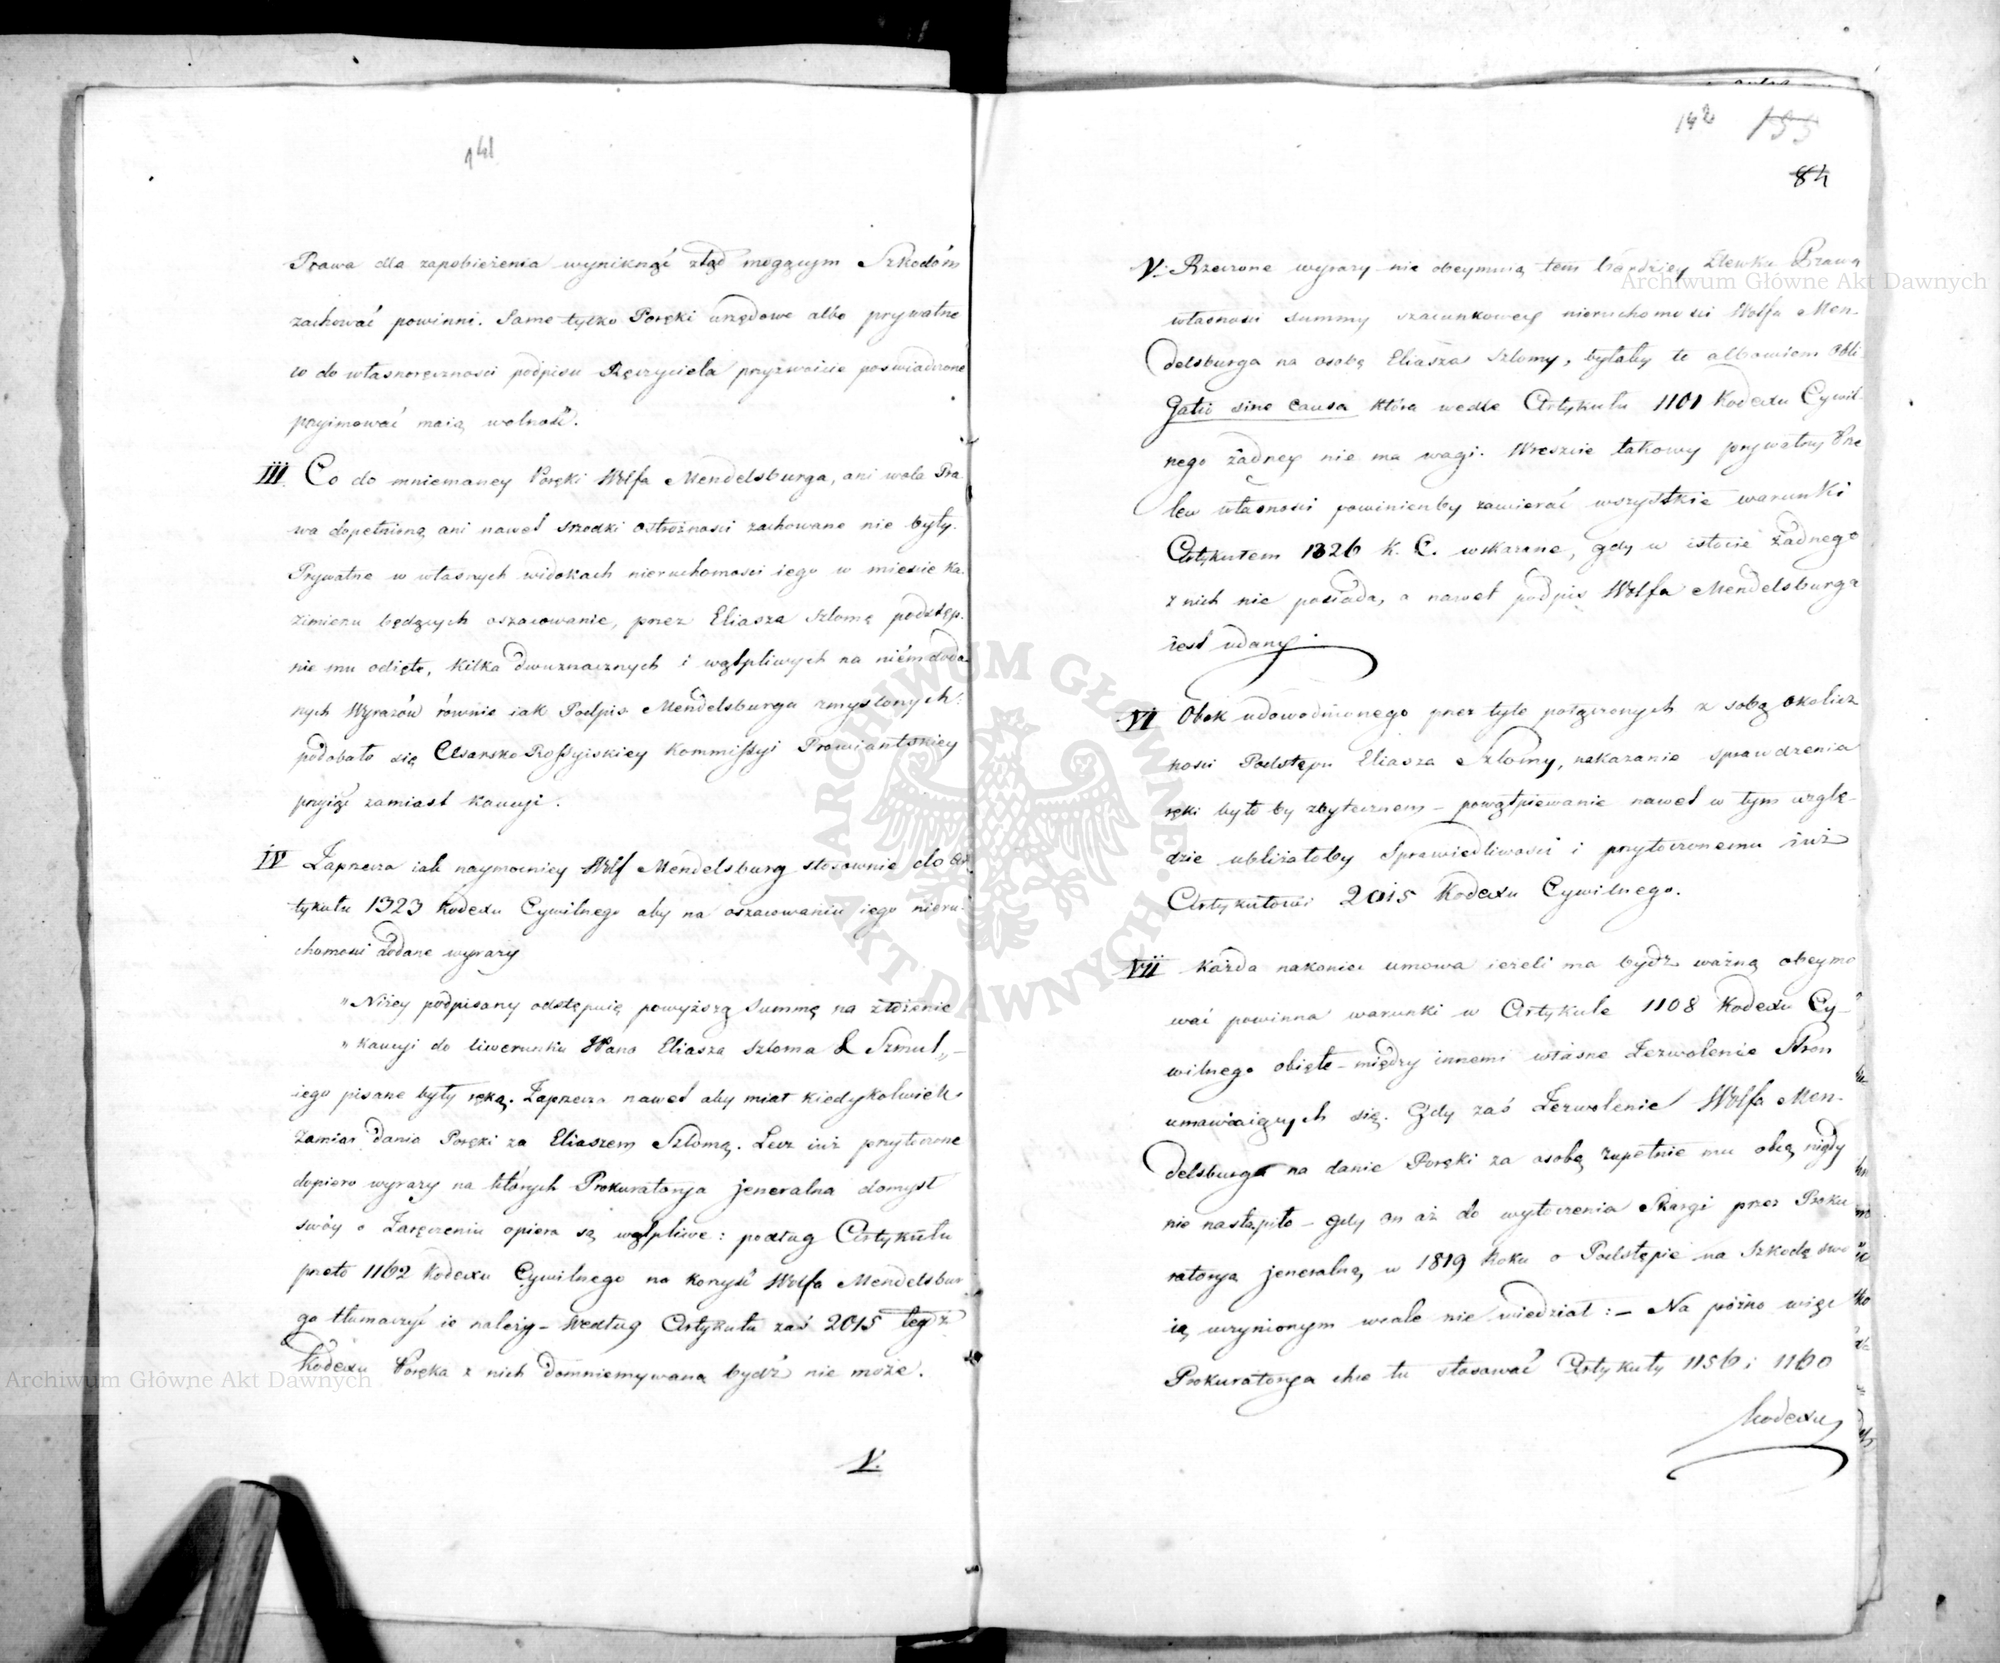 141
Prawa dla zapobieżenia wyniknąć ztąd mogącym Szkodóm
zachować powinni. Same tylko Poręki urzędowe albo prywatne
co do własnoręczności podpisu Ręczyciela przyzwoicie poświadczone
przyimować maią wolność.
III Co do mniemaney Poręki Wolfa Mendelsburga, ani wola Pra
wa dopełnioną ani nawet srzodki ostrożności zachowane nie były.
Prywatne w własnych widokach nieruchomości iego w mieście Ka-
zimierzu będących oszacowanie, przez Eliasza Szlomę podstęp-
nie mu odięte, kilka dwuznacznych i wątpliwych na niém doda-
nych Wyrazów równie iak Podpis Mendelsburga zmyslonych:
podobało się Cesarsko Rossyiskiey Kommissyi Prowiantskiey
przyiąć zamiast kaucyi.
IV Zaprzecza iak naymocniey Wolf Mendelsburg stosownie do Ar-
tykułu 1323 Kodexu Cywilnego aby na oszacowaniu iego nieru-
chomości dodane wyrazy
"Niżey podpisany odstępuię powyższą Summę na złożenie
"kaucyi do liwerunku Eliasza Szloma & Szmul"
iego pisane były ręką. Zaprzecza nawet aby miał kiedykolwiek
Zamiar dania Poręki za Eliaszem Szlomą. Lecz iuż przytoczone
dopiero wyrazy na których Prokuratorya jeneralna domysł
swóy o Zaręczeniu opiera są wątpliwe: podług Artykułu
przeto 1162 Kodexu Cywilnego na korzyść Wolfa Mendelsbur
ga tłumaczyć ie należy - według Artykułu zaś 2015 tegoż
Kodexu Poręka z nich domniemywana bydź nie może.
V.
142 155
84
V. Rzeczone wyrazy nie obeymuią tem bardziey Zlewku Prawa
własności summy szacunkowey nieruchomości Wolfa Men-
delsburga na osobę Eliasza Szlomy, byłaby to albowiem Obli-
gatio sine Causa która wedle Artykułu 1101 Kodexu Cywil-
nego żadney nie ma wagi. Wreszcie takowy prywatny Prze
lew własności powinienby zawierać wszystkie warunki
Artykułem 1326 K. C. wskazane, gdy w istocie żadnego
z nich nie posiada, a nawet podpis Wolfa Mendelsburga
iest udany.
VI Obok udowodnionego przez tyle połączonych z sobą okolicz
ności Podstępu Eliasza Szlomy, nakazanie sprawdzenia
ręki było by zbytecznem - powątpiewanie nawet w tym wzglę-
dzie ubliżałoby Sprawiedliwości i przytoczonemu iuż
Artykułowi 2015 Kodexu Cywilnego.
VII Każda nakoniec umowa ieżeli ma bydź ważną obeymo
wać powinna warunki w Artykule 1108 Kodexu Cy-
wilnego obięte - między innemi własne Zezwolenie Stron
umawiaiących się. Gdy zaś Zezwolenie Wolfa Men-
delsburga na danie Poręki za osobę zupełnie mu obcą nigdy
nie nastąpiło - gdy on aż do wytoczenia Skargi przez Proku
ratoryą jeneralną w 1819 Roku o Podstępie na Szkodę swo
ią uczynionym wcale nie wiedział: - Na późno więc
Prokuratorya chce tu stosować Artykuły 1156 i 1160
Kodexu
Archiwum Główne Akt Dawnych
Archiwum Główne Akt Dawnych
ARCHIWUM GŁÓWNE AKT DAWNYCH